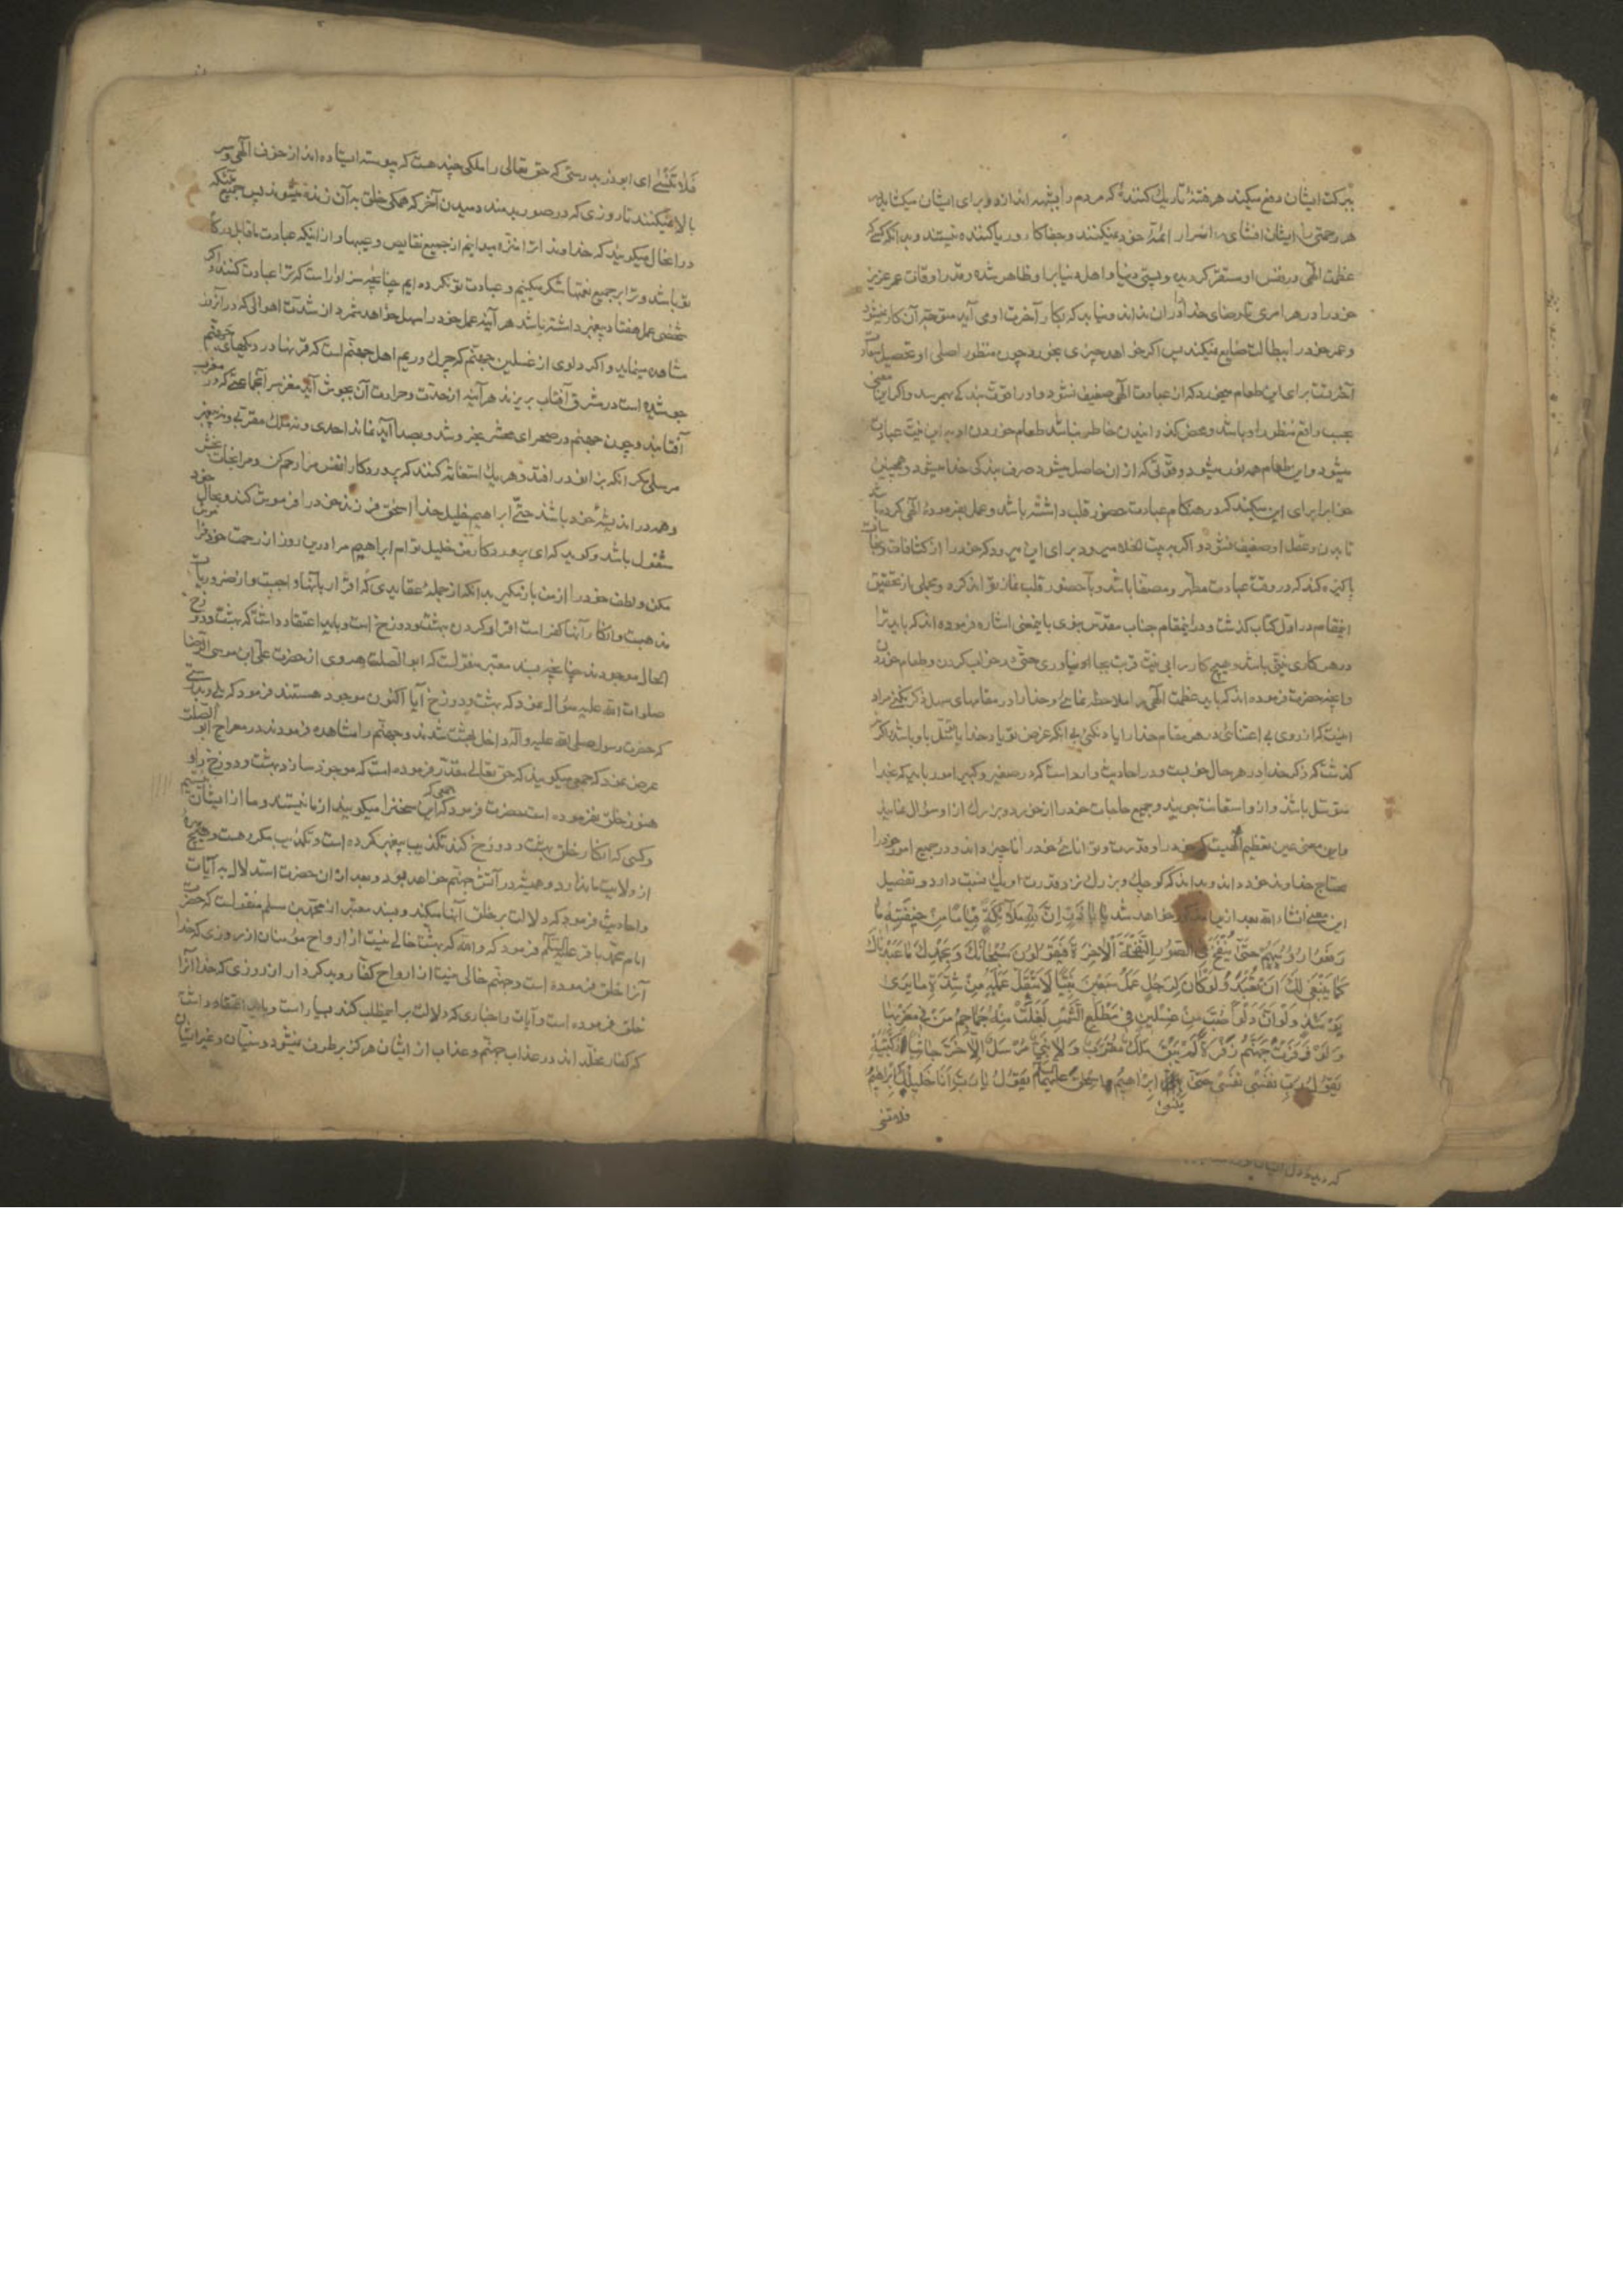 ببرکت ایشان دفع میکند هر فتنهٔ تاریک کنندهٔ که مردم را بشبهه اندازد و برای ایشان میکشاید در
هر رحمتی را ایشان افشای اسرار ائمهٔ خود نمیکنند و جفاکار و ریاکننده نیستند و بدانکه کسیکه
عظمت الهی در نفس او مستقر کردیده و پستی دنیا و اهل دنیا برا و ظاهر شده و قدر اوقات عمر عزیز
خود را در هر امری تا رضای خدا را دران نداند و نیابد که بکار آخرت او می آید متوجه آن کار نمیشود
و عمر خود را ببطالت ضایع نمیکند پس اکر خواهد چیزی بخورد چون منظور اصلی او تحصیل سعادت
آخرتست برای این طعام میخورد که از عبادت الهی ضعیف نشود و او را قوت بندکی بهم رسد و اکر این معنی
بحسب واقع منظور او باشد و محض کذرانیدن خاطر نباشد طعام خوردن او به این نیت عبادت
میشود و این طعام همه نور میشود و قوتی که از ان حاصل میشود صرف بندکی خدا میشود و همچنین
خواب را برای این میکند که در هنکام عبادت حضور قلب داشته باشد و عمل بفرمودهٔ الهی کرده باشد
تا بدن و عقل او ضعیف نشود و اکر به بیت الخلا میرود برای این میرود که خود را از کثافات و نجاسات
پاکیزه کند که در وقت عبادت مطهر و مصفا باشد و با حضور قلب نماز تواند کرد و مجملی از تحقیق
اینمقام در اول کتاب کذشت و در اینمقام جناب مقدس نبوی باینمعنی اشاره فرموده اند که باید ترا
در هر کاری نیتی باشد و هیچ کار را بی نیت قربت بجا نیاوری حتی در خواب کردن و طعام خوردن
و آنچه حضرت فرموده اند که باید عظمت الهی را ملاحظه نمائی و خدا را در مقامهای سهل ذکر نکنی مراد
اینست که از روی بی اعتنائی در هر مقام خدا را یاد نکنی بی آنکه غرض تو یاد خدا یا توسل باو باشد و اکر نه
کذشت که ذکر خدا در هر حال خوبست و در احادیث وارد است که در صغیر و کبیر امور باید که بخدا
متوسل باشند و از و استعانت جویند و جمیع حاجات خود را از خورد و بزرک از او سؤال نمایند
و این معنی عین تعظیم الهیست که خود را و قدرت و توانائی خود را ناچیز داند و در جمیع امور خود را
محتاج خداوند خود داند و بداند که کوچک و بزرک نزد قدرت او یک نسبت دارد و تفصیل
این معنی انشاء الله بعد ازین مذکور خواهد شد یا اباذر ان لله ملائکة قیاما من خیفته ما
رفعوا رؤسهم حتی ینفخ فی الصور النفخة الاخرة فیقولون سبحانک و بحمدک ما عبدناک
کما ینبغی لک ان تعبد و لو کان لرجل عمل سبعین نبیا لاستقل عمله من شدة ما یری
یومئذ و لو ان دلوا صب من غسلین فی مطلع الشمس لغلت منه جماجم من فی مغربها
و لو زفرت جهنم زفرة لم یبق ملک مقرب و لا نبی مرسل الا خر جاثیا لرکبتیه
یقول رب نفسی نفسی حتی ینسی ابراهیم اسحق علیهما السلام یقول یا رب انا خلیلک ابراهیم
فلا تنسنی
فلا تنسنی ای ابوذر بدرستی که حق تعالی را ملکی چند هست که پیوسته ایستاده اند از خوف الهی و سر
بالا نمیکنند تا روزی که در صور بدمند دمیدن آخر که همکی خلق به آن زنده میشوند پس جمیع ملائکه
در انحال میکویند که خداوندا ترا منزه میدانیم از جمیع نقایص و عیبها و از اینکه عبادت ما قابل درکاه
تو باشد و ترا بر جمیع نعمتها شکر میکنیم و عبادت تو نکرده ایم چنانچه سزاوار است که ترا عبادت کنند و اکر
شخصی عمل هفتاد پیغمبر داشته باشد هر آینه عمل خود را سهل خواهد شمرد از شدت اهوالی که در آنروز
مشاهده مینماید و اکر دلوی از غسلین جهنم که چرک و ریم اهل جهنم است که قرنها در دیکهای جهنم
جوشیده است در مشرق آفتاب بریزند هر آینه از حدت و حرارت آن بجوش آید مغز سر آنجماعتی که در مغرب
آفتابند و چون جهنم در صحرای محشر بخروشد و بصدا آید نماند احدی و نه ملک مقربی و نه پیغمبر
مرسلی مکر آنکه بزانو در افتد و هر یک استغاثه کنند که پروردکارا نفس مرا رحم کن و مرا نجات بخش
و همه در اندیشهٔ خود باشند حتی ابراهیم خلیل خدا اسحق فرزند خود را فراموش کند و بحال خود
مشغول باشد و کوید که ای پروردکار من خلیل توام ابراهیم مرا درین روز از رحمت خود فراموش
مکن و لطف خود را از من باز مکیر بدانکه از جملهٔ عقایدی که اقرار بآنها واجبست و از ضروریات
مذهبست و انکار آنها کفر است اقرار کردن ببهشت و دوزخ است و باید اعتقاد داشت که بهشت و دوزخ
الحال موجودند چنانچه بسند معتبر منقولست که ابوالصلت هروی از حضرت علی ابن موسی الرضا
صلوات الله علیه سؤال نمود که بهشت و دوزخ آیا اکنون موجود هستند فرمود که بلی و بدرستی
که حضرت رسول صلی الله علیه و آله داخل بهشت شدند و جهنم را مشاهده فرمودند در معراج ابو الصلت
عرض نمود که جمعی میکویند که حق تعالی مقدر فرموده است که موجود سازد بهشت و دوزخ را و
هنوز خلق نفرموده است حضرت فرمود که جمعی که این سخنرا میکویند از ما نیستند و ما از ایشان نیستیم
و کسی که انکار خلق بهشت و دوزخ کند تکذیب پیغمبر کرده است و تکذیب ما کرده است و هیچ بهره
از ولایت ما ندارد و همیشه در آتش جهنم خواهد بود و بعد از ان حضرت استدلال به آیات
و احادیث فرمود که دلالت بر خلق آنها میکند و بسند معتبر از محمد بن مسلم منقولست که حضرت
امام محمد باقر علیه السلام فرمود که و الله که بهشت خالی نیست از ارواح مؤمنان از روزی که خدا
آنرا خلق فرموده است و جهنم خالی نیست از ارواح کفار و بدکردار از ان روزی که خدا آنرا
خلق فرموده است و آیات و اخباری که دلالت بر این مطلب کند بسیار است و باید اعتقاد داشت
که کفار مخلد اند در عذاب جهنم و عذاب از ایشان هرکز برطرف نمیشود و سنیان و غیر ایشان